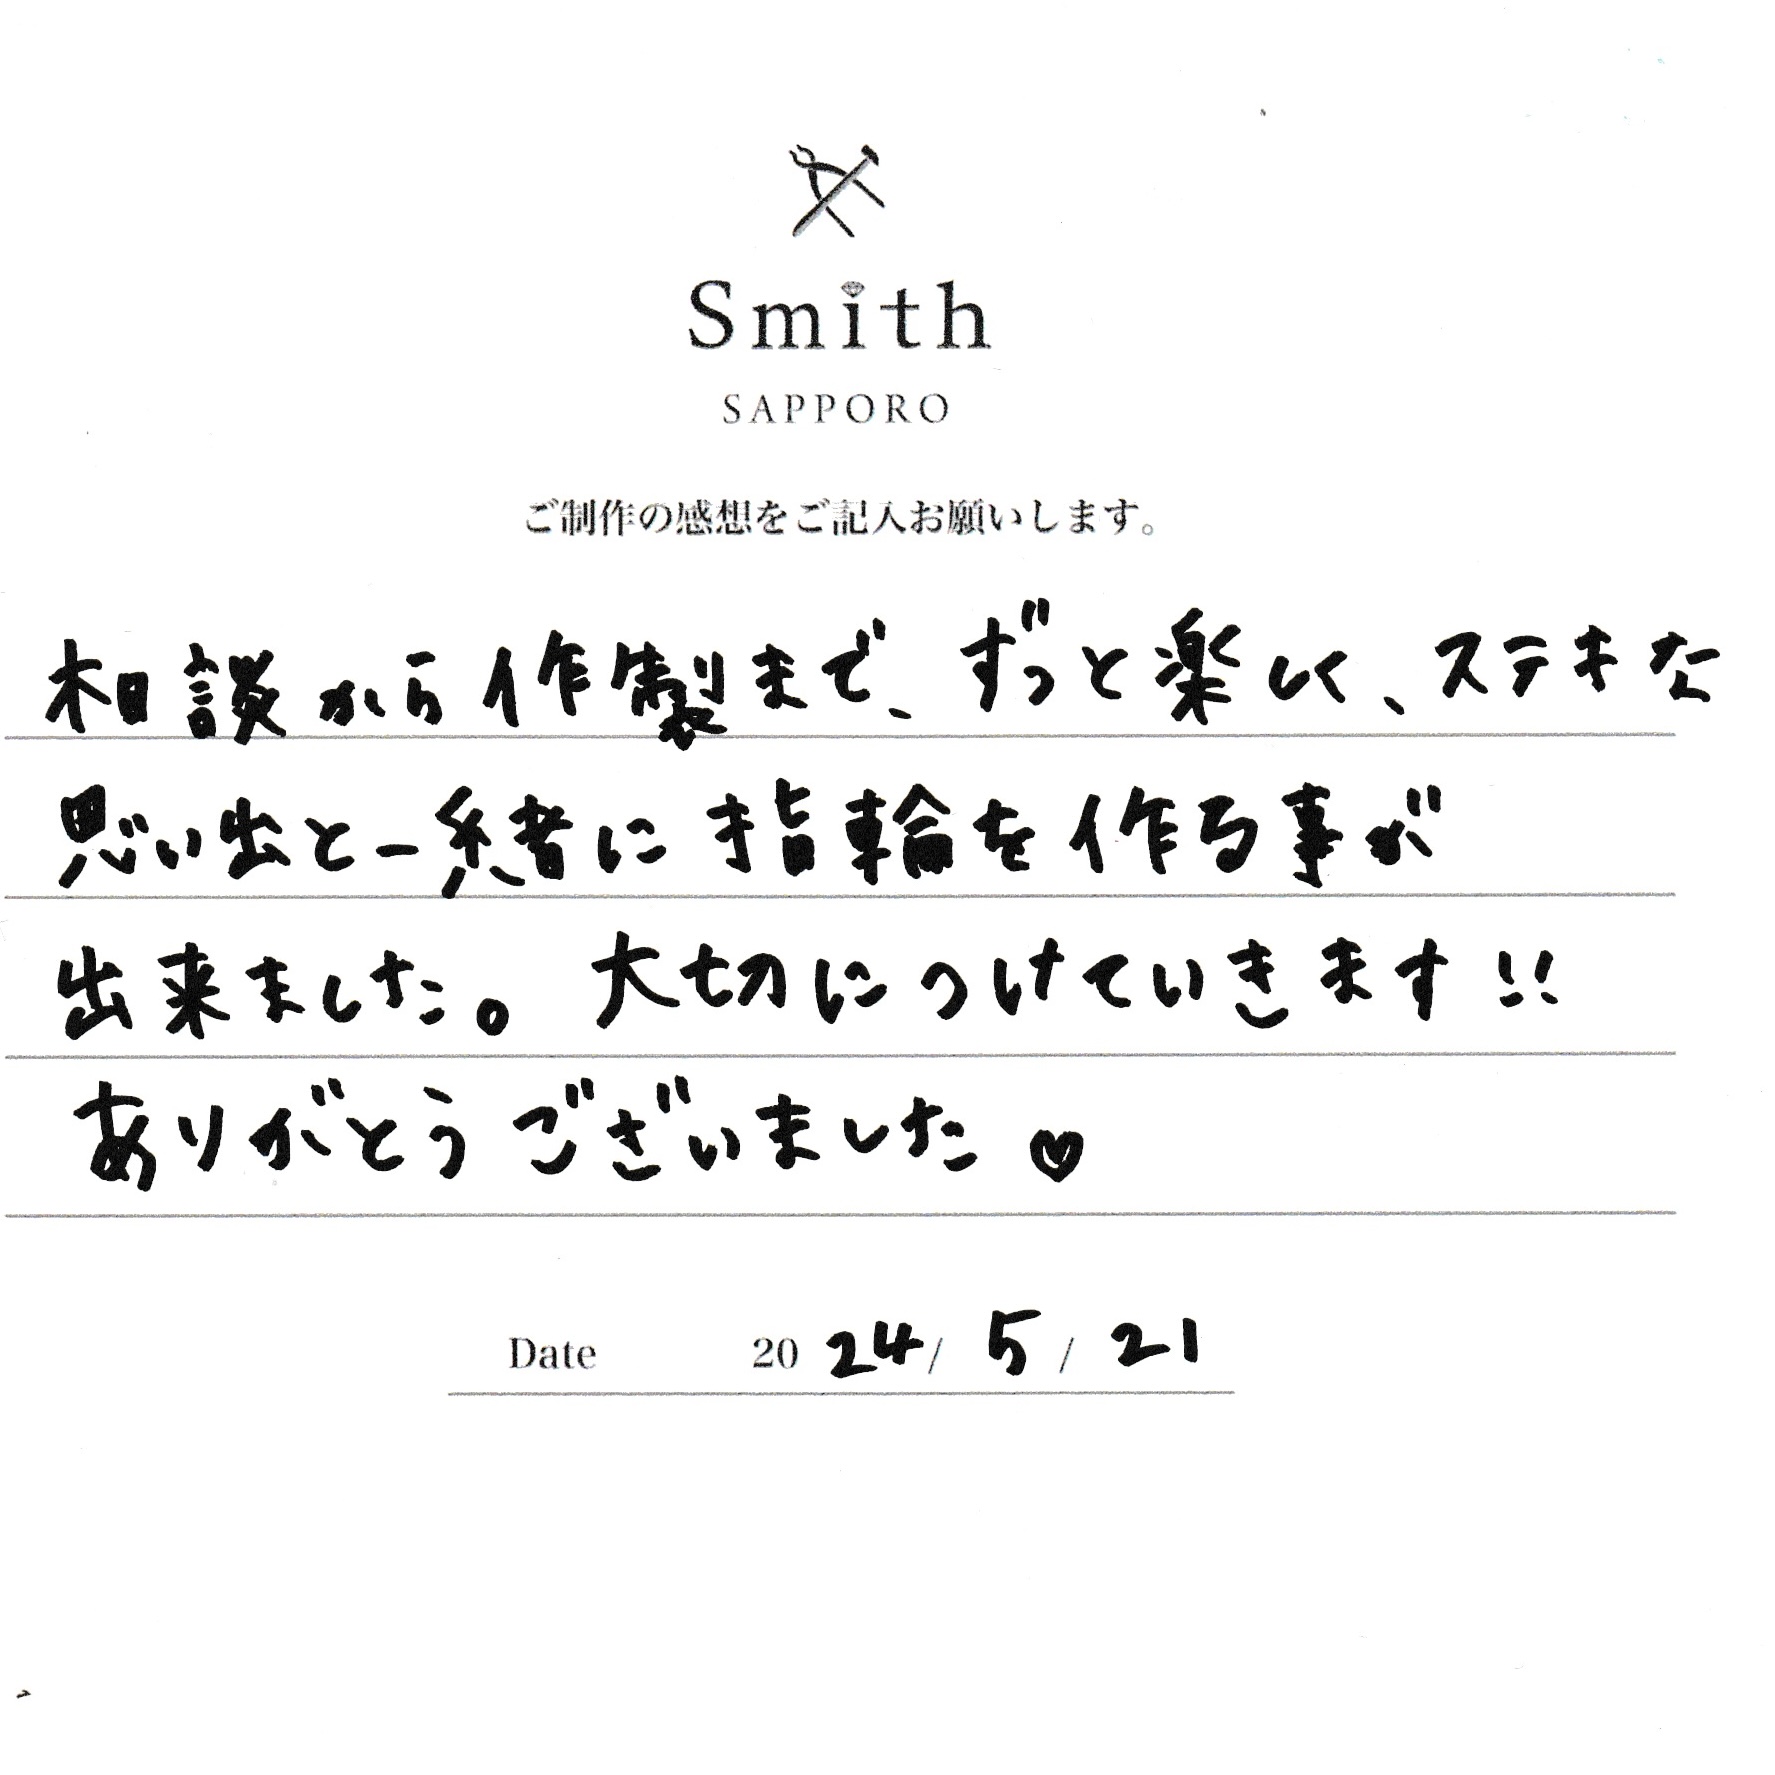 Smith
SAPPORO
ご制作の感想をご記入お願いします。
相談から作製まで、ずっと楽しく、ステキな
思い出と一緒に指輪を作る事が
出来ました。大切につけていきます!!
ありがとうございました♡
Date 2024/5/21